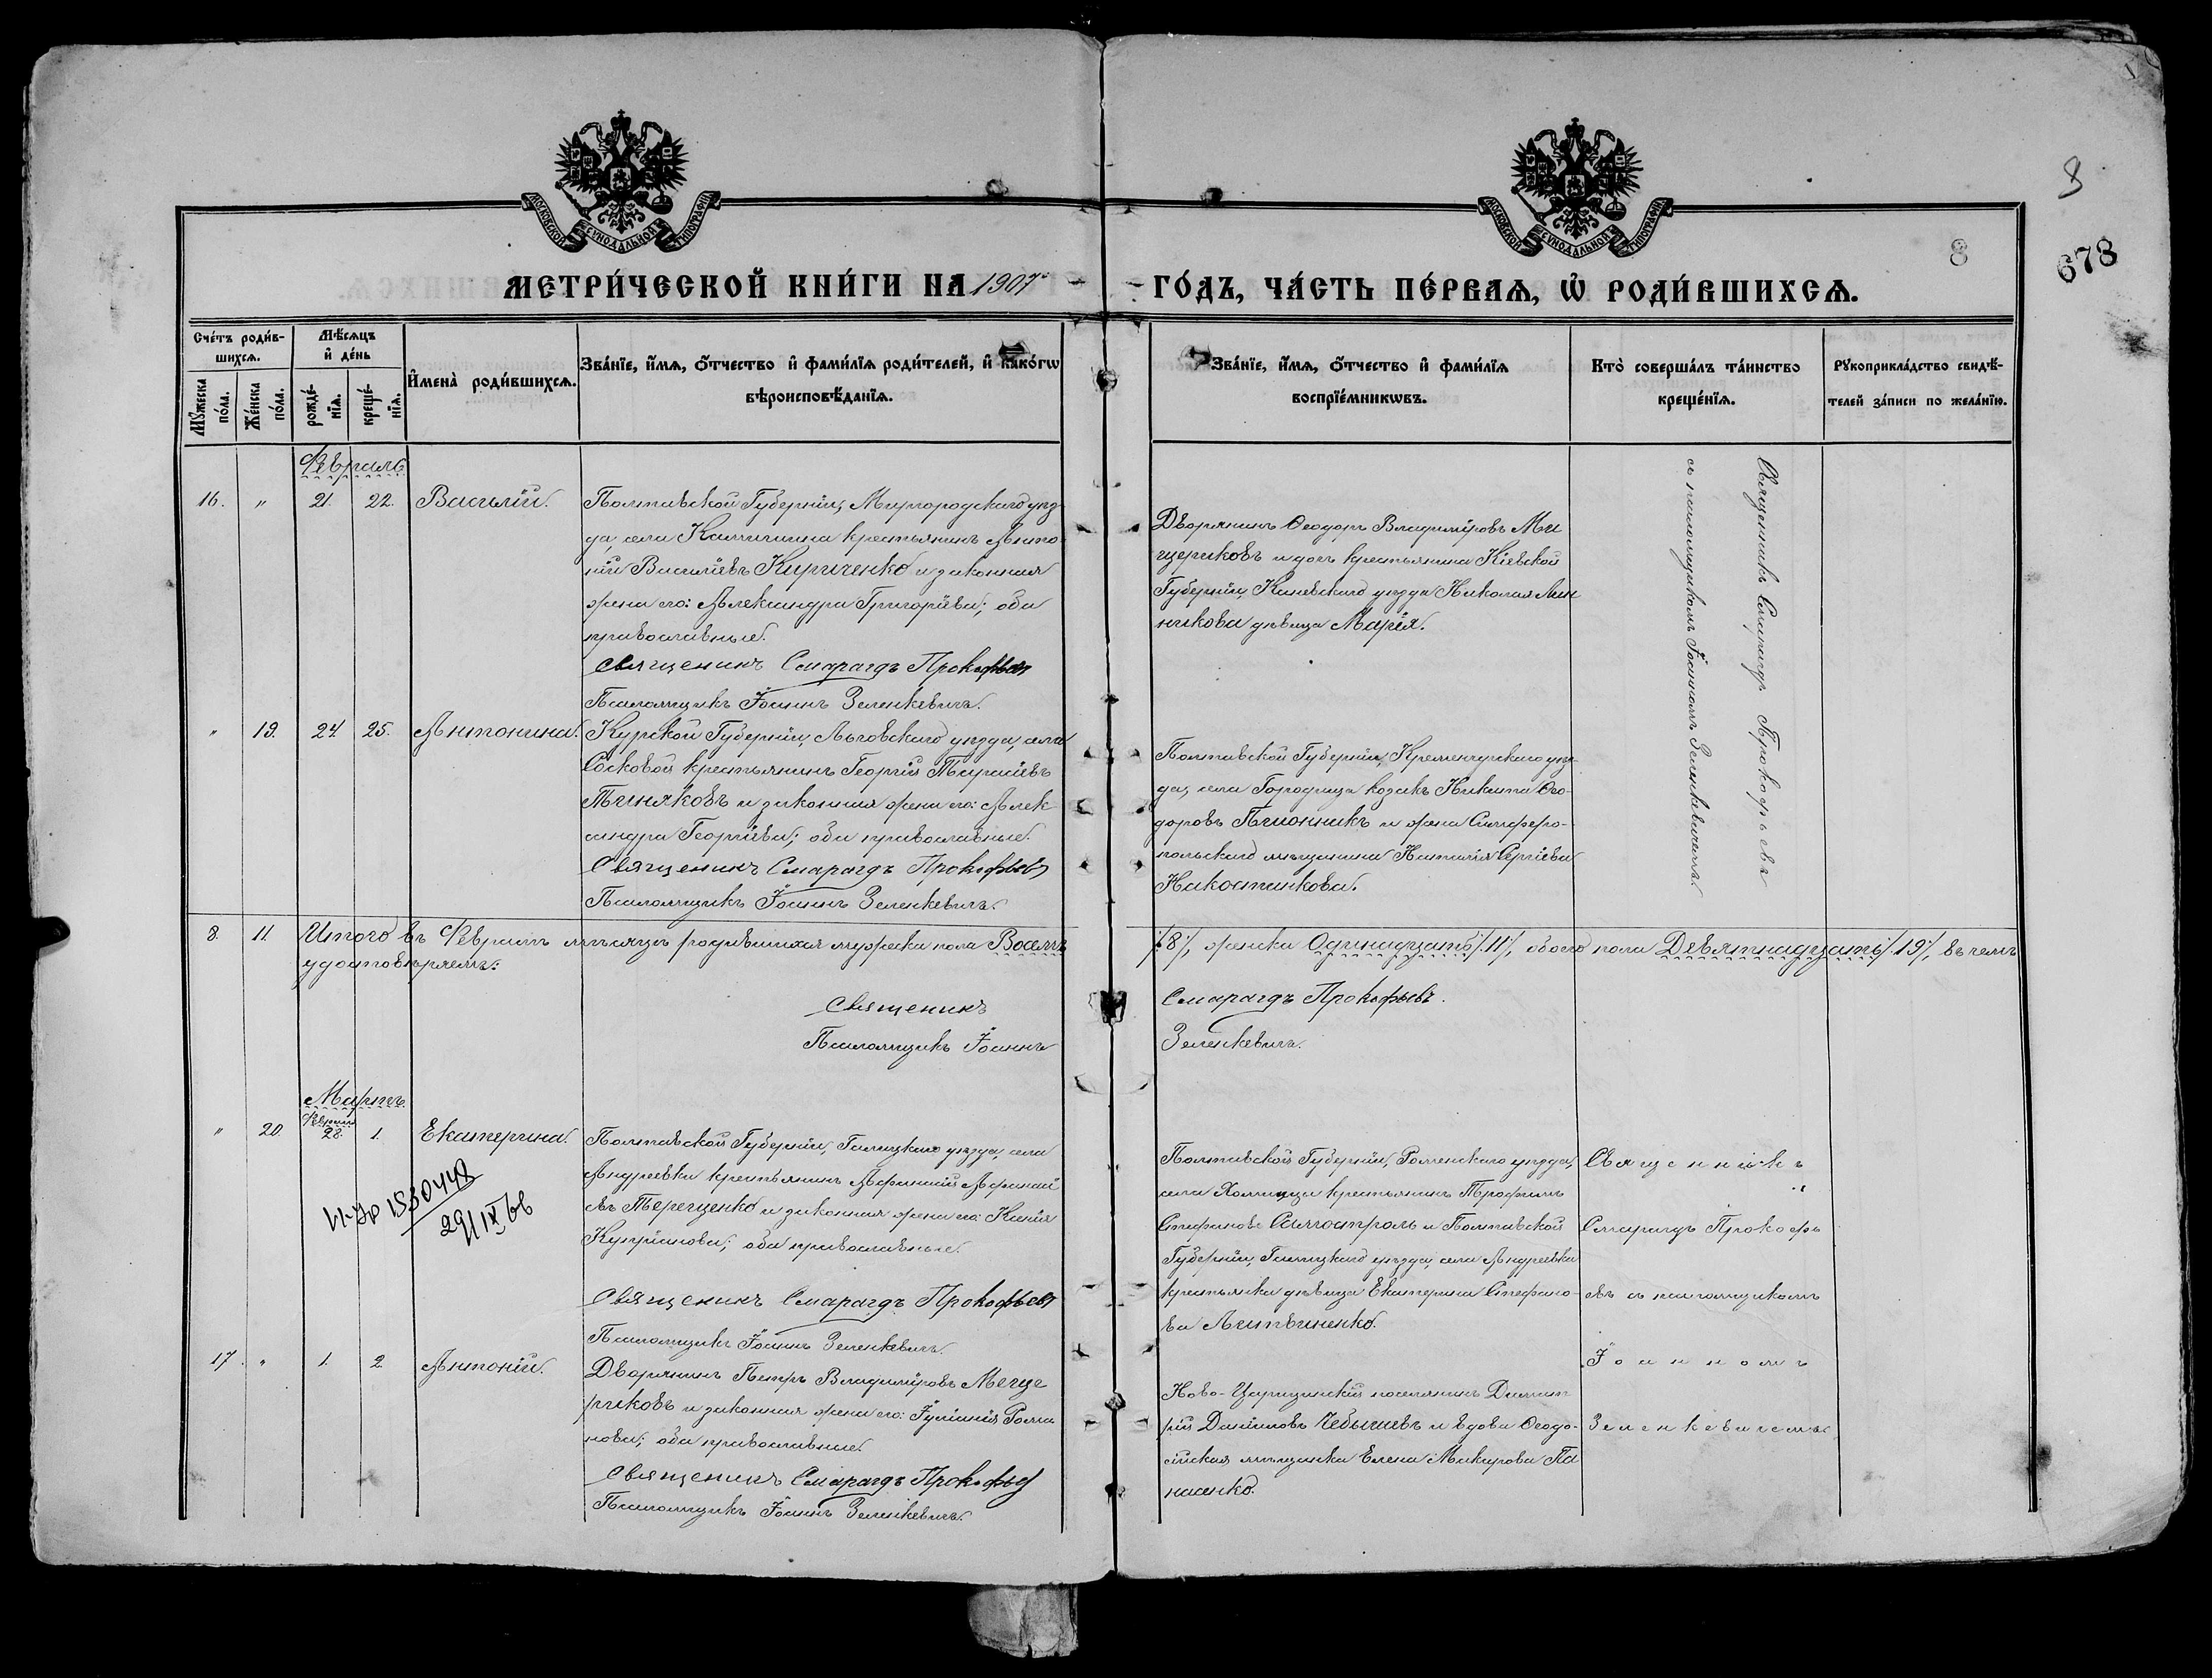 8
8
678
МОСКОВСКОЙ СѴНОДАЛЬНОЙ ТИПОГРАФІИ
МОСКОВСКОЙ СѴНОДАЛЬНОЙ ТИПОГРАФІИ
МЕТРИ́ЧЕСКОЙ КНИ́ГИ НА 1907й
ГО́ДЪ, ЧА́СТЬ ПЕ́РВАѦ, Ѡ҆ РОДИ́ВШИХСѦ.
Сче́тъ роди́в-
шихсѧ.
Мꙋ́жеска по́ла.
Же́нска по́ла.
Мѣ́сѧцъ
и҆ де́нь
рожде́-
нїѧ.
креще́-
нїѧ.
И҆мена̀ роди́вшихсѧ.
Зва́нїе, и҆́мѧ, ѻ҆́тчество и҆ фами́лїѧ роди́телей, и҆ како́гѡ
вѣроисповѣ́данїѧ.
Зва́нїе, и҆́мѧ, ѻ҆́тчество и҆ фами́лїѧ
воспрїе́мникѡвъ.
Кто̀ соверша́лъ та́инство
креще́нїѧ.
Рꙋкоприкла́дство свидѣ́-
телей за́писи по жела́нїю.
Февраль
16. " 21. 22. Василій.
Полтавской Губерніи, Миргородскаго уѣз-
да, села Камышина крестьянинъ Анто-
ній Василіевъ Кириченко и законная
жена его: Александра Григоріева; оба
православные.
Священникъ Смарагдъ Прокофьев
Псаломщикъ Іоаннъ Зеленкевичъ.
Дворянинъ Ѳеодоръ Владиміровъ Ме
щериковъ и дочь крестьянина Кіевской
Губерніи, Каневскаго уѣзда Николая Лин
никова дѣвица Марія.
Священникъ Смарагдъ Прокофьевъ
съ псаломщикомъ Іоанномъ Зеленкевичемъ.
" 19. 24. 25. Антонина.
Курской Губерніи, Льговскаго уѣзда, села
Сосковой крестьянинъ Георгій Тарасіевъ
Тиняковъ и законная жена его: Алек-
сандра Георгіева; оба православные.
Священникъ Смарагдъ Прокофьевъ
Псаломщикъ Іоаннъ Зеленкевичъ.
Полтавской Губерніи, Кременчугскаго уѣз-
да, села Городища козакъ Никита Ѳео-
доровъ Пшонникъ и жена Симферо-
польскаго мѣщанина Наталія Сергіева
Накостинкова.
8. 11. Итого въ Февралѣ мѣсяцѣ родившихся мужска пола Восемь
/8/, женска Одинадцать /11/, обоего пола Девятнадцать /19/, въ чемъ
удостовѣряемъ:
Священникъ
Смарагдъ Прокофьевъ.
Псаломщикъ Іоаннъ
Зеленкевичъ.
Мартъ
Февраля
" 20. 28. 1. Екатерина.
Полтавской Губерніи, Гадяцкаго уѣзда, села
Андреевки крестьянинъ Аѳанасій Аѳанасі
евъ Терещенко и законная жена его: Ксенія
Купріанова; оба православные.
Священникъ Смарагдъ Прокофьевъ
Псаломщикъ Іоаннъ Зеленкевичъ.
1530448
29/IX 66
Полтавской Губерніи, Роменскаго уѣзда,
села Хоминца крестьянинъ Трофимъ
Стефановъ Самостроль и Полтавской
Губерніи, Гадяцкаго уѣзда, села Андреевки
крестьянка дѣвица Екатерина Стефано-
ва Литвиненко.
Священникъ
Смарагдъ Прокофь
евъ съ псаломщикомъ
Іоанномъ
Зеленкевичемъ.
17. " 1. 2. Антоній.
Дворянинъ Петръ Владиміровъ Меще
риковъ и законная жена его: Іуліанія Рома-
нова; оба православные.
Священникъ Смарагдъ Прокофьев
Псаломщикъ Іоаннъ Зеленкевичъ.
Ново-Царицинскій поселянинъ Димит
рій Даніиловъ Чебышевъ и вдова Ѳеодо-
сійская мѣщанка Елена Макарова Па
насенко.